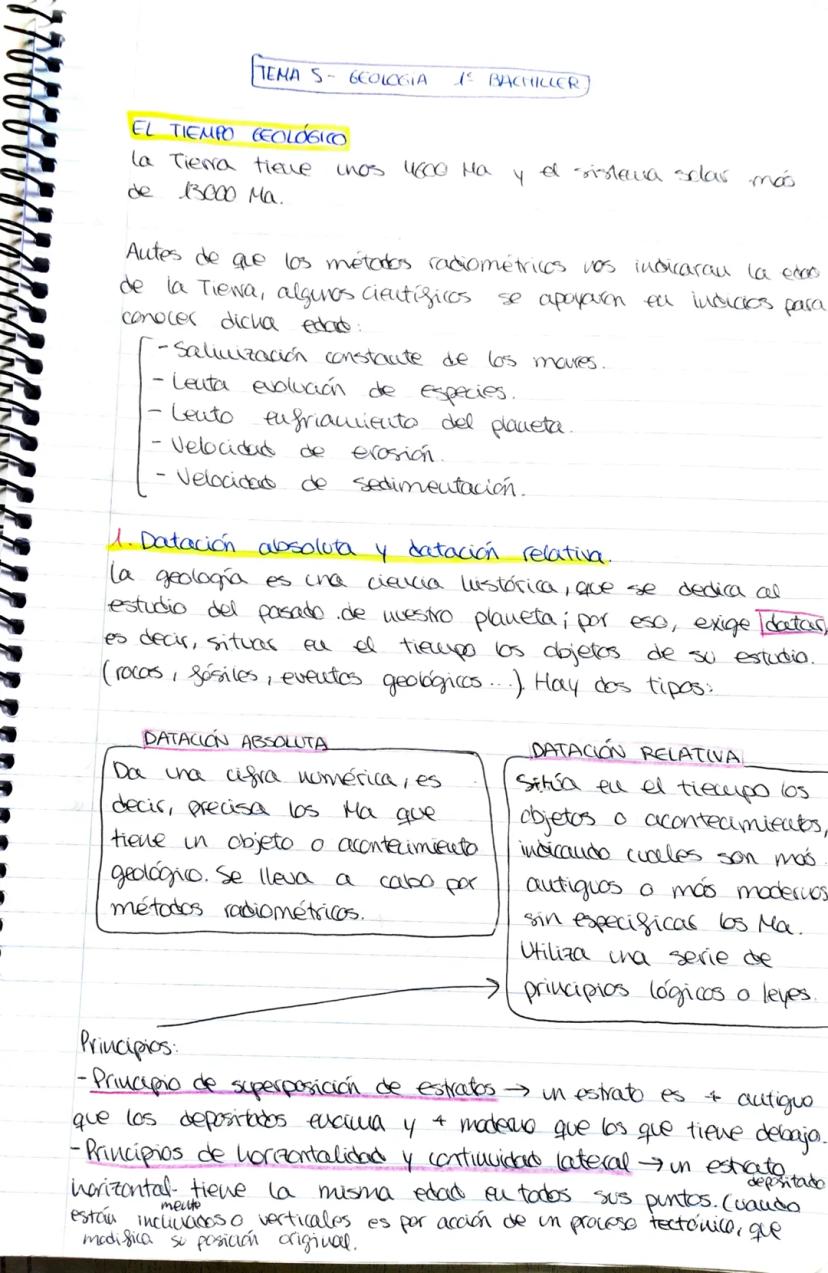 TEMA 5 - GEOLOGIA 1º BACHILLER
EL TIEMPO GEOLÓGICO
La Tierra tiene unos 4600 Ma y el sistema solar más
de 13000 Ma.
Antes de que los métodos radiométricos nos indicaran la edad
de la Tierra, algunos científicos se apoyaron en indicios para
conocer dicha edad:
- Salinización constante de los mares.
- Lenta evolución de especies.
- Lento enfriamiento del planeta.
- Velocidad de erosión.
- Velocidad de sedimentación.
1. Datación absoluta y datación relativa.
La geología es una ciencia histórica, que se dedica al
estudio del pasado de nuestro planeta; por eso, exige datar,
es decir, situar en el tiempo los objetos de su estudio.
(rocas, fósiles, eventos geológicos...). Hay dos tipos:
DATACIÓN ABSOLUTA
Da una cifra numérica, es
decir, precisa los Ma que
tiene un objeto o acontecimiento
geológico. Se lleva a cabo por
métodos radiométricos.
DATACIÓN RELATIVA
Sitúa en el tiempo los
objetos o acontecimientos,
indicando cuales son más
antiguos o más modernos
sin especificar los Ma.
Utiliza una serie de
principios lógicos o leyes.
Principios:
- Principio de superposición de estratos → un estrato es + antiguo
que los depositados encima y + moderno que los que tiene debajo.
- Principios de horizontalidad y continuidad lateral → un estrato depositado
horizontalmente tiene la misma edad en todos sus puntos. Cuando
están inclinados o verticales es por acción de un proceso tectónico, que
modifica su posición original.